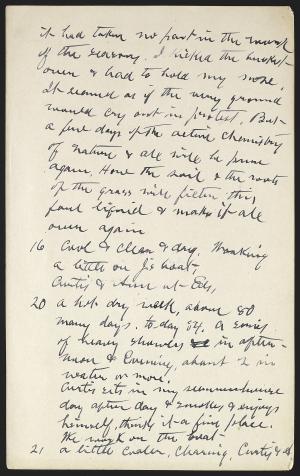 it had taken no part in the work
of the season. I kicked the bucket
over & had to hold my nose.
It seemed as if the very ground
would cry out in protest. But
a few days of the active chemistry
of Nature & all will be pure
again. How the soil & the roots
of the grass will filter this
foul liquid & make it all
over again
16 Cool & clean & dry. Working
a little on J's boat.
Curtis & Ann at Eds,
20 a hot dry week, about 80
many days. to day 84. a series
of heavy showers in after-
noon & Evening, about 2 in
water or more.
Curtis sits in my summerhouse
day after day & smokes & enjoys
himself, thinks it a fine place.
We work on the boat
21 a little cooler, clearing, Curtis &